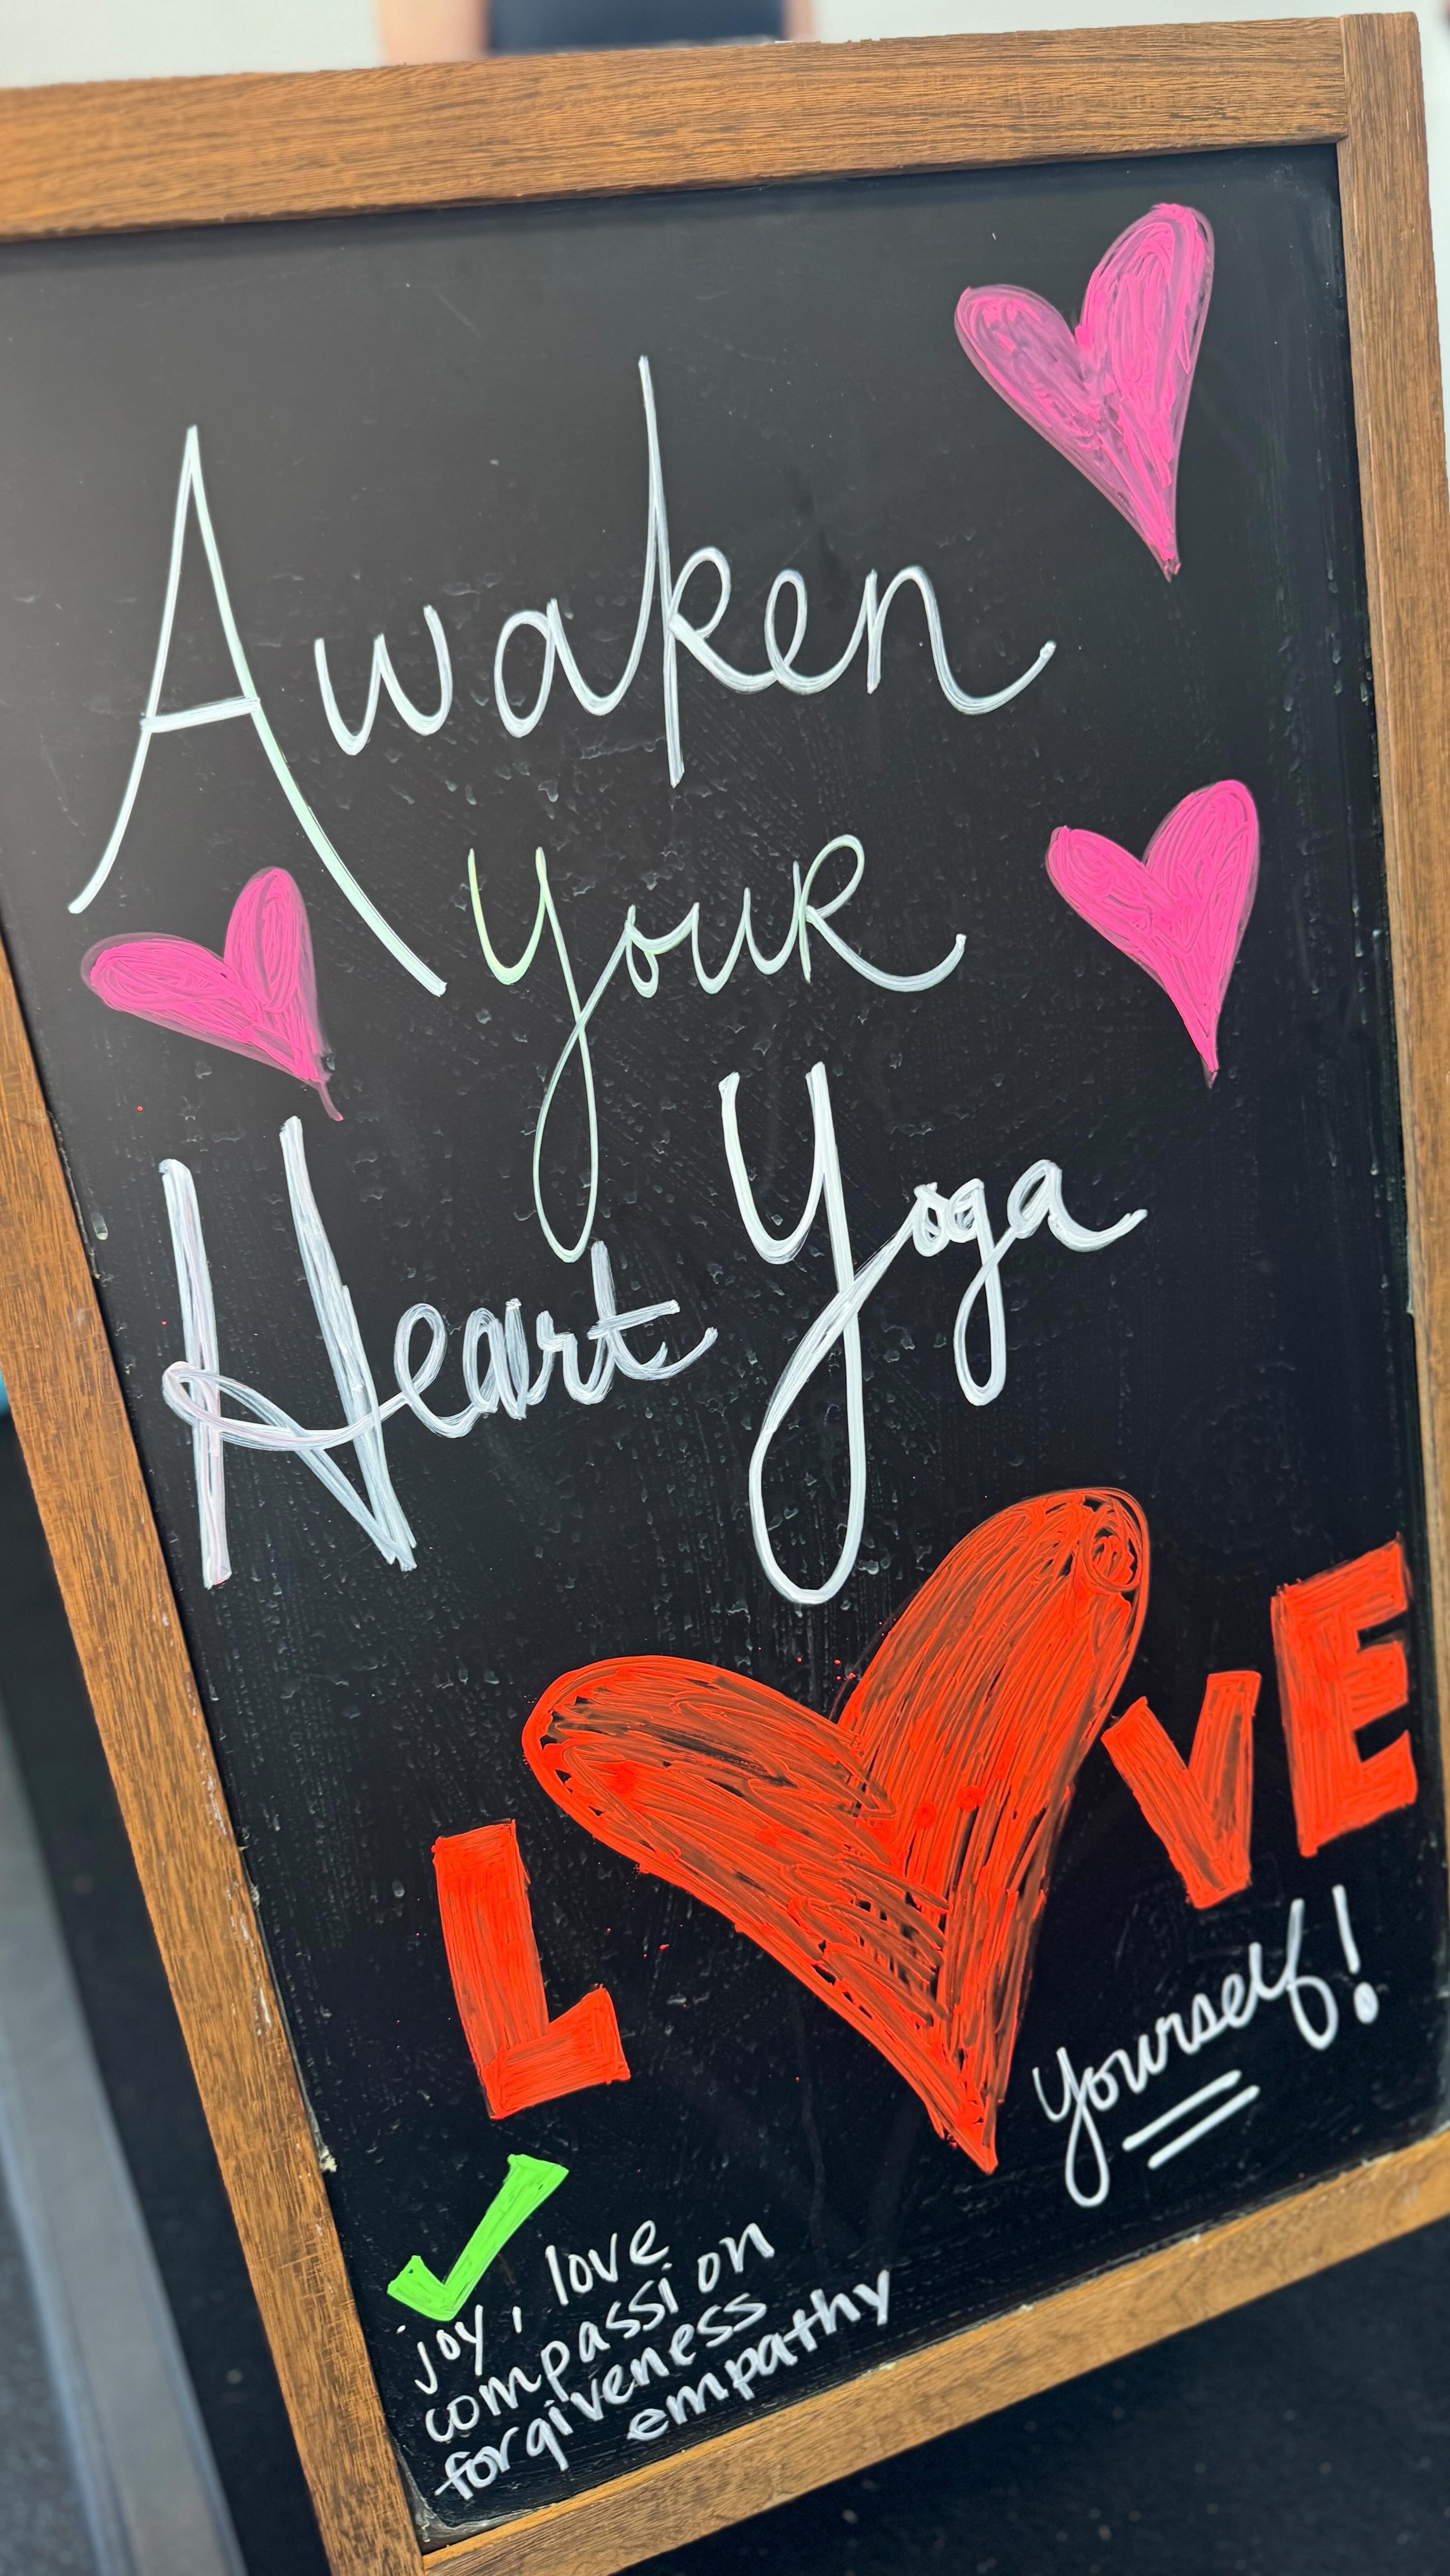 Awaken
your
Heart Yoga
L VE
yourself!
joy, love
compassion
forgiveness
empathy